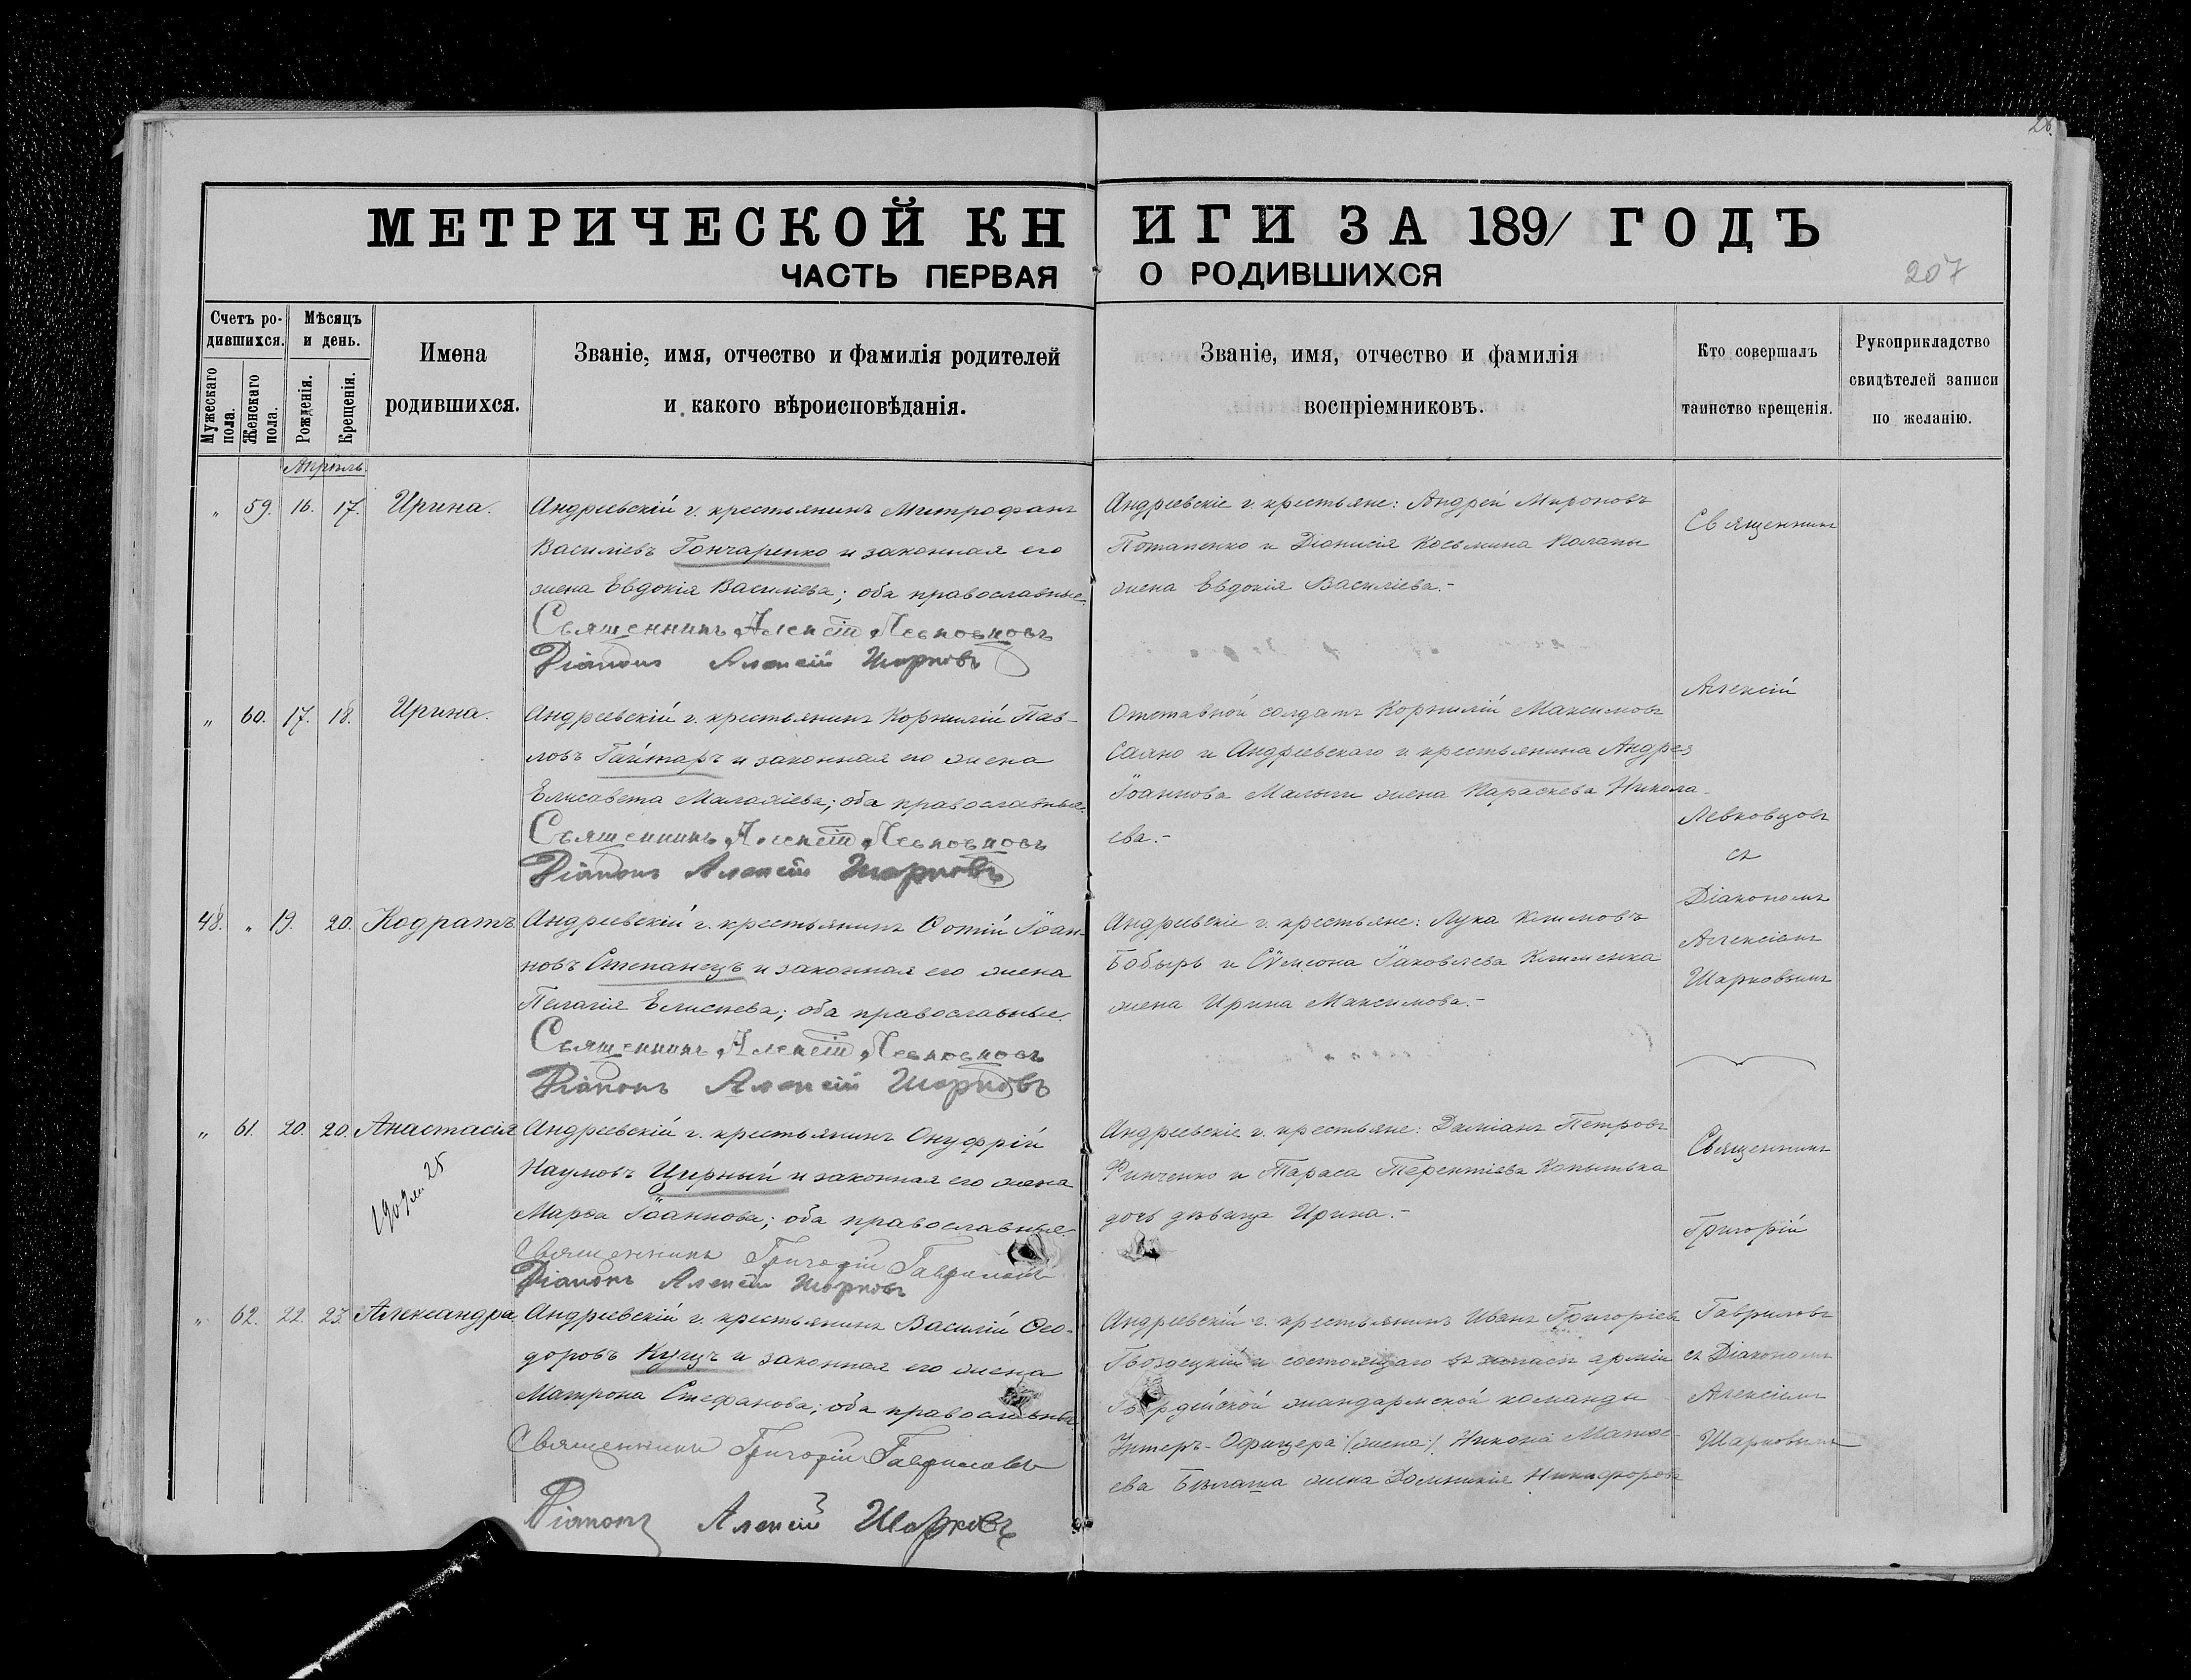 28.
МЕТРИЧЕСКОЙ КНИГИ ЗА 1891 ГОДЪ
ЧАСТЬ ПЕРВАЯ О РОДИВШИХСЯ
207
Счетъ ро-
дившихся.
Мужескаго пола.
Женскаго пола.
Мѣсяцъ
и день.
Рожденія.
Крещенія.
Имена
родившихся.
Званіе, имя, отчество и фамилія родителей
и какого вѣроисповѣданія.
Званіе, имя, отчество и фамилія
воспріемниковъ.
Кто совершалъ
таинство крещенія.
Рукоприкладство
свидѣтелей записи
по желанію.
Апрѣль
" 59. 16. 17. Ирина.
Андреевскій г. крестьянинъ Митрофанъ
Василіевъ Гончаренко и законная его
жена Евдокія Василіева; оба православные.
Священникъ Алексій Левковцовъ
Діаконъ Алексій Шарковъ
Андреевскіе г. крестьяне: Андрей Мироновъ
Потапенко и Діонисія Косьмина Колапы
жена Евдокія Василіева.-
Священникъ
" 60. 17. 18. Ирина.
Андреевскій г. крестьянинъ Корнилій Пав-
ловъ Гайтаръ и законная его жена
Елисавета Малахіева; оба православные.
Священникъ Алексій Левковцовъ
Діаконъ Алексій Шарковъ
Отставной солдатъ Корнилій Максимовъ
Саяно и Андреевскаго г. крестьянина Андрея
Іоаннова Малыги жена Параскева Никола-
ева.-
Алексій
Левковцовъ
съ
Діакономъ
Алексіемъ
Шарковымъ
48. " 19. 20. Кодратъ.
Андреевскій г. крестьянинъ Фотій Іоан-
новъ Степанецъ и законная его жена
Пелагія Елисѣева; оба православные.
Священникъ Алексій Левковцовъ
Діаконъ Алексій Шарковъ
Андреевскіе г. крестьяне: Лука Климовъ
Бобырь и Сѵмеона Іаковлева Клименка
жена Ирина Максимова.-
" 61. 20. 20. Анастасія
Андреевскій г. крестьянинъ Онуфрій
Наумовъ Цирный и законная его жена
Марѳа Іоаннова; оба православные.
Священникъ Григорій Гавриловъ
Діаконъ Алексій Шарковъ
Андреевскіе г. крестьяне: Даміанъ Петровъ
Финченко и Тараса Терентіева Копытька
дочь дѣвица Ирина.-
Священникъ
Григорій
Гавриловъ
съ Діакономъ
Алексіемъ
Шарковымъ
" 62. 22. 23. Александра.
Андреевскій г. крестьянинъ Василій Ѳео-
доровъ Куцъ и законная его жена
Матрона Стефанова; оба православны
Священникъ Григорій Гавриловъ
Діаконъ Алексій Шарковъ
Андреевскій г. крестьянинъ Иванъ Григоріевъ
Гвоздецкій и состоящаго въ запасѣ арміи
жандармской команды
Унтеръ-Офицера /:жена:/ Никона Матѳе-
ева Бѣлаша жена Домникія Никифорова